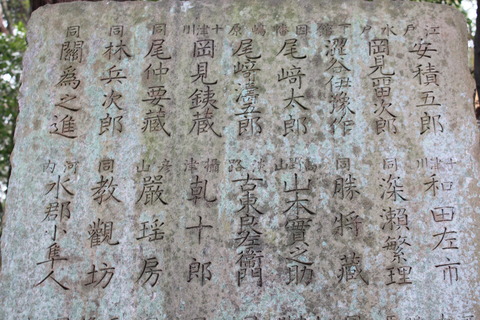 江戸 安積五郎
水戸 岡見留次郎
澀谷伊豫作
尾﨑太郎
嶋原 尾﨑濤五郎
十津川 岡見銕蔵
同 尾仲要蔵
同 林兵次郎
同 關為之進
十津川 和田左市
同 深瀬繁理
同 勝将蔵
山本實之助
淡路 古東左衛門
攝津 乾十郎
山 巖瑶房
同 教觀坊
河内 水郡小隼人